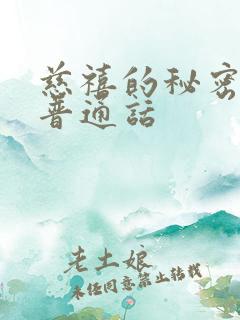 慈禧的秘密
普通話
老土娘
未经同意禁止转载